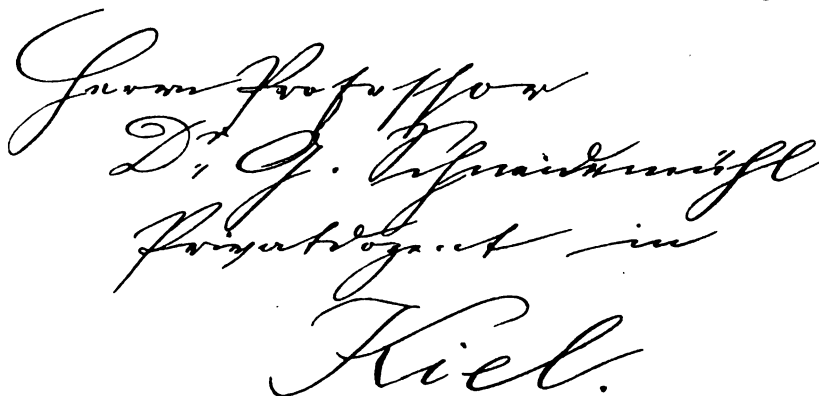 Herrn Professor
Dr. G. Schneidemühl
Privatdozent in
Kiel.